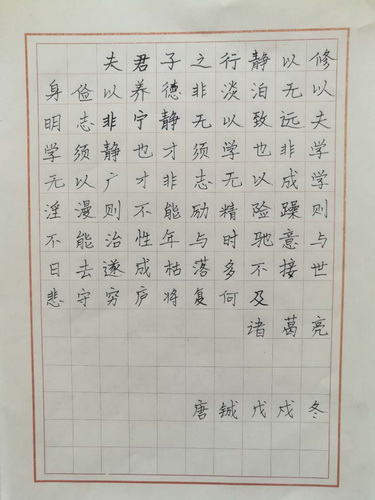 夫君子之行静以修
身俭以养德非淡泊无以
明志非宁静无以致远夫
学须静也才须学也非学
无以广才非志无以成学
淫漫则不能励精险躁则
不能治性年与时驰意与
日去遂成枯落多不接世
悲守穷庐将复何及
诸葛亮
唐铖戊戌冬